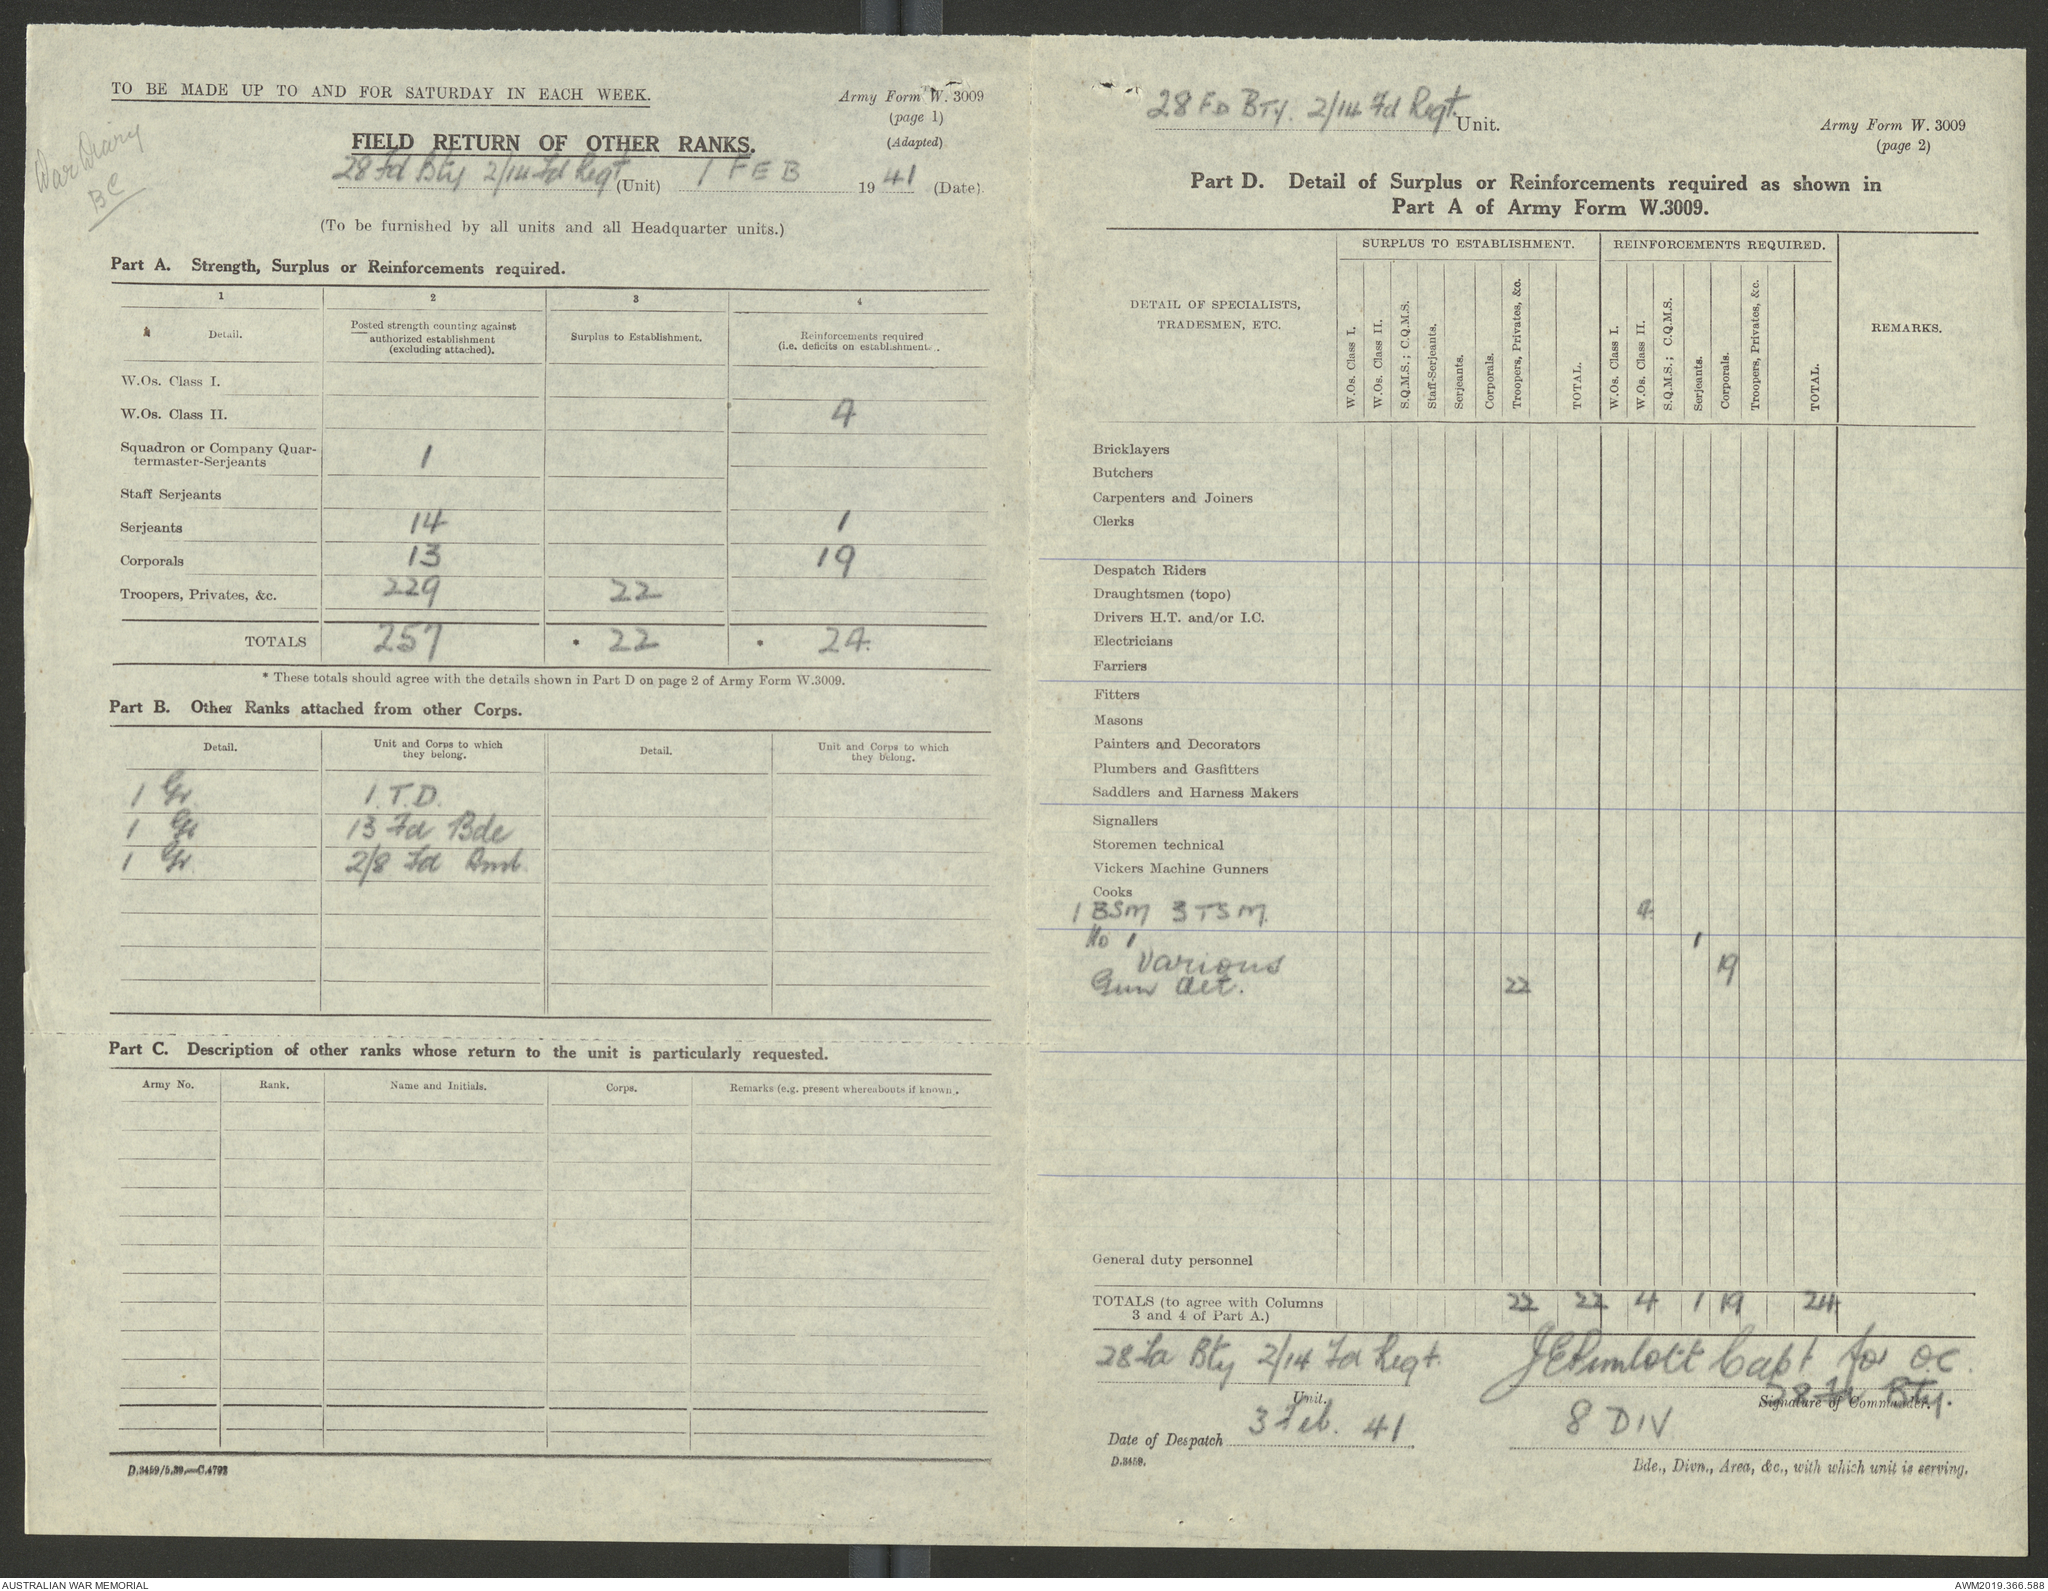 TO BE MADE UP TO AND FOR SATURDAY IN EACH WEEK.
Army Form W. 3009
(page 1)
(Adapted)
War Diary
BC
FIELD RETURN OF OTHER RANKS.
28 Fd Bty 2/14 Fd Regt (Unit) 1 FEB 1941 (Date).
(To be furnished by all units and all Headquarter units.)
Part A. Strength, Surplus or Reinforcements required.
1 2 3 4
Detail. Posted strength counting against authorized establishment (excluding attached). Surplus to Establishment. Reinforcements required (i.e. deficits on establishment).
W.Os. Class I.
W.Os. Class II. 4
Squadron or Company Quar-
termaster-Serjeants 1
Staff Serjeants
Serjeants 14 1
Corporals 13 19
Troopers, Privates, &c. 229 22
TOTALS 257 * 22 * 24.
* These totals should agree with the details shown in Part D on page 2 of Army Form W.3009.
Part B. Other Ranks attached from other Corps.
Detail. Unit and Corps to which they belong. Detail. Unit and Corps to which they belong.
1 Gr. 1.T.D.
1 Gr 13 Fd Bde
1 Gr. 2/8 Fd Amb.
Part C. Description of other ranks whose return to the unit is particularly requested.
Army No. Rank. Name and Initials. Corps. Remarks (e.g. present whereabouts if known).
D.3459/5.39.—C.4793
28 FD BTY. 2/14 Fd Regt. Unit.
Army Form W. 3009
(page 2)
Part D. Detail of Surplus or Reinforcements required as shown in
Part A of Army Form W.3009.
DETAIL OF SPECIALISTS, TRADESMEN, ETC.
SURPLUS TO ESTABLISHMENT. REINFORCEMENTS REQUIRED. REMARKS.
W.Os. Class I. W.Os. Class II. S.Q.M.S.; C.Q.M.S. Staff-Serjeants. Serjeants. Corporals. Troopers, Privates, &c. TOTAL. W.Os. Class I. W.Os. Class II. S.Q.M.S.; C.Q.M.S. Serjeants. Corporals. Troopers, Privates, &c. TOTAL.
Bricklayers
Butchers
Carpenters and Joiners
Clerks
Despatch Riders
Draughtsmen (topo)
Drivers H.T. and/or I.C.
Electricians
Farriers
Fitters
Masons
Painters and Decorators
Plumbers and Gasfitters
Saddlers and Harness Makers
Signallers
Storemen technical
Vickers Machine Gunners
Cooks
1 BSM 3 TSM. 4.
No 1 1
Various 19
Gun det. 22
General duty personnel
TOTALS (to agree with Columns
3 and 4 of Part A.) 22 22 4 1 19 24
28 Fd Bty 2/14 Fd Regt.
Unit.
Capt for O.C.
28 Fd Bty.
Signature of Commander.
Date of Despatch 3 Feb. 41
8 DIV
D.3459.
Bde., Divn., Area, &c., with which unit is serving.
AUSTRALIAN WAR MEMORIAL
AWM2019.366.588